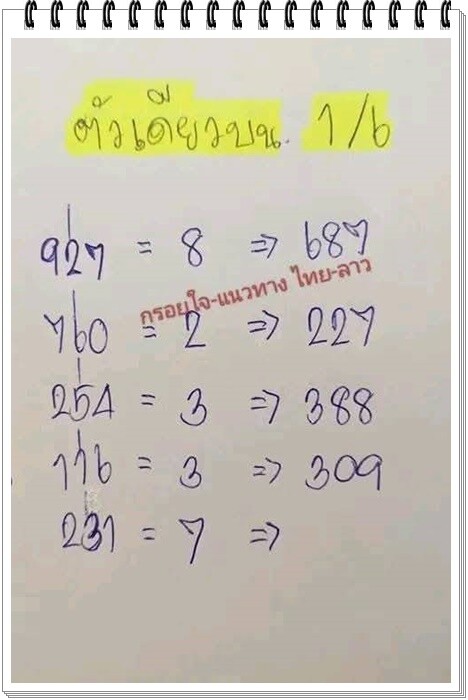 ตัวเดียวบน. 1/6
927 = 8 => 687
กรอยใจ-แนวทาง ไทย-ลาว
760 = 2 => 227
254 = 3 => 388
116 = 3 => 309
231 = 7 =>